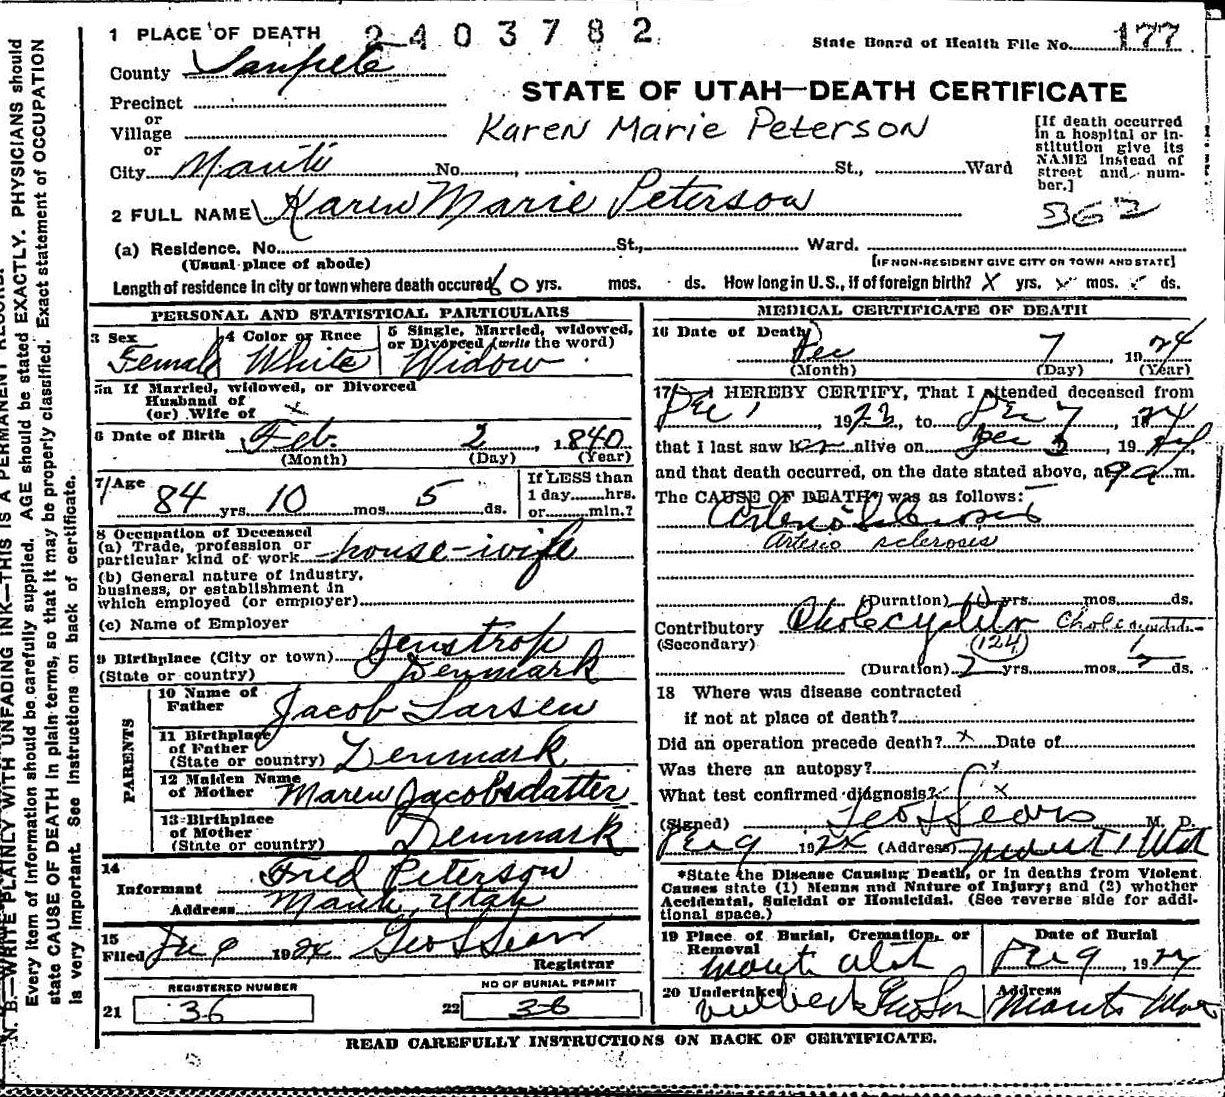 1 PLACE OF DEATH 2403782
State Board of Health File No. 177
County Sanpete
STATE OF UTAH—DEATH CERTIFICATE
Precinct
or
Village
or
Karen Marie Peterson
[If death occurred in a hospital or institution give its NAME instead of street and number.]
City Manti No. St., Ward
2 FULL NAME Karen Marie Peterson
362
(a) Residence. No. St., Ward.
(Usual place of abode) [IF NON-RESIDENT GIVE CITY OR TOWN AND STATE]
Length of residence in city or town where death occured 60 yrs. mos. ds. How long in U.S., if of foreign birth? X yrs. mos. ds.
PERSONAL AND STATISTICAL PARTICULARS
3 Sex Female
4 Color or Race White
5 Single, Married, widowed, or Divorced (write the word) Widow
5a If Married, widowed, or Divorced
Husband of
(or) Wife of x
6 Date of Birth Feb. 2 1840
(Month) (Day) (Year)
7 Age 84 yrs. 10 mos. 5 ds.
If LESS than
1 day hrs.
or min.?
8 Occupation of Deceased
(a) Trade, profession or
particular kind of work house-wife
(b) General nature of industry,
business, or establishment in
which employed (or employer)
(c) Name of Employer
9 Birthplace (City or town) Jenstrop
(State or country) Denmark
PARENTS
10 Name of Father Jacob Larsen
11 Birthplace of Father (State or country) Denmark
12 Maiden Name of Mother Maren Jacobsdatter
13 Birthplace of Mother (State or country) Denmark
14
Informant Fred Peterson
Address Manti Utah
15
Filed 9 1924 Geo L Sears
Registrar
REGISTERED NUMBER
21 36
NO OF BURIAL PERMIT
22 36
MEDICAL CERTIFICATE OF DEATH
16 Date of Death Dec 7, 1924
(Month) (Day) (Year)
17 I HEREBY CERTIFY, That I attended deceased from
Dec 1, 1923, to Dec 7, 1924
that I last saw her alive on Dec 3, 1924
and that death occurred, on the date stated above, at 9 a m.
The CAUSE OF DEATH* was as follows:
Arterio Sclerosis
Arterio sclerosis
(Duration) 10 yrs. mos. ds.
Contributory
(Secondary)
Cholecystitis
(124)
(Duration) 2 yrs. mos. ds.
18 Where was disease contracted
if not at place of death?
Did an operation precede death? x Date of
Was there an autopsy? x
What test confirmed diagnosis? x
(Signed) Geo L Sears M. D.
Dec 9 1924 (Address) Manti Utah
*State the Disease Causing Death, or in deaths from Violent
Causes state (1) Means and Nature of Injury; and (2) whether
Accidental, Suicidal or Homicidal. (See reverse side for addi-
tional space.)
19 Place of Burial, Cremation, or Removal Manti Utah
Date of Burial Dec 9, 1924
20 Undertaker & Son
Address Manti Utah
READ CAREFULLY INSTRUCTIONS ON BACK OF CERTIFICATE.
N. B.—WRITE PLAINLY WITH UNFADING INK—THIS IS A PERMANENT RECORD.
Every item of information should be carefully supplied. AGE should be stated EXACTLY. PHYSICIANS should
state CAUSE OF DEATH in plain terms, so that it may be properly classified. Exact statement of OCCUPATION
is very important. See instructions on back of certificate.